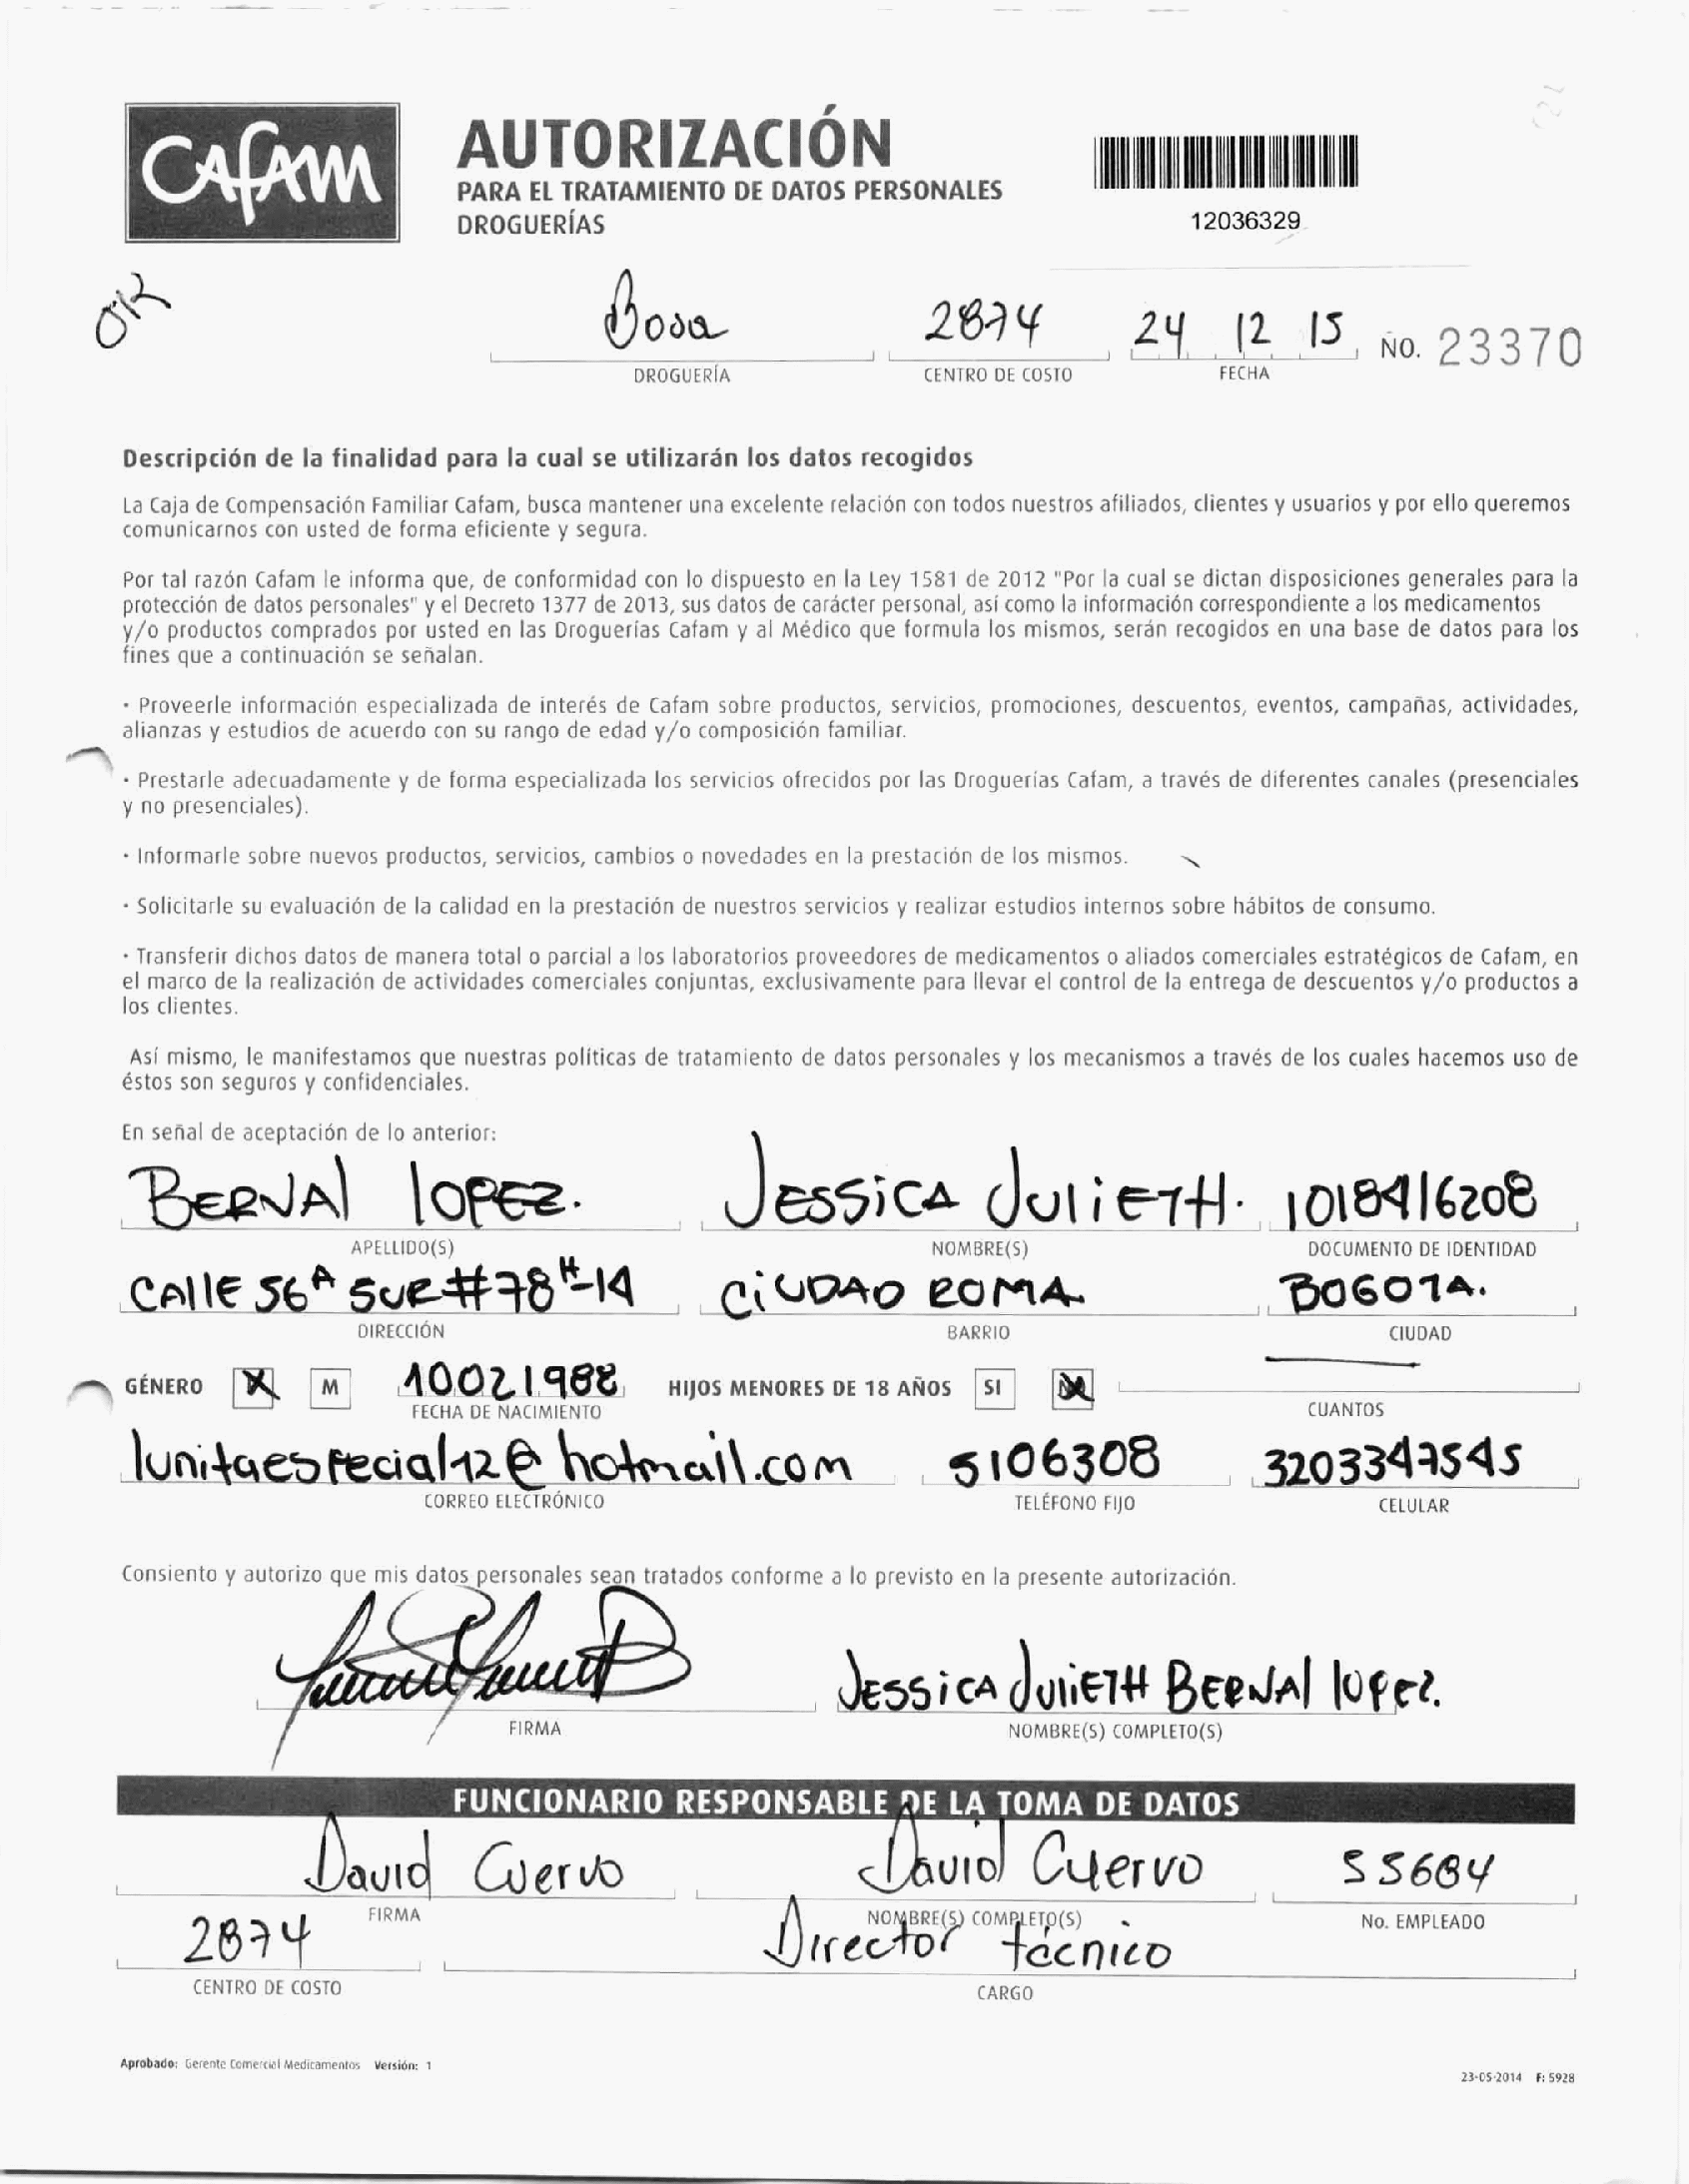 CAFAM
AUTORIZACIÓN
PARA EL TRATAMIENTO DE DATOS PERSONALES
DROGUERÍAS
12036329
OK
Bosa 2874 24 12 15 No. 23370
DROGUERÍA CENTRO DE COSTO FECHA
Descripción de la finalidad para la cual se utilizarán los datos recogidos
La Caja de Compensación Familiar Cafam, busca mantener una excelente relación con todos nuestros afiliados, clientes y usuarios y por ello queremos
comunicarnos con usted de forma eficiente y segura.
Por tal razón Cafam le informa que, de conformidad con lo dispuesto en la Ley 1581 de 2012 "Por la cual se dictan disposiciones generales para la
protección de datos personales" y el Decreto 1377 de 2013, sus datos de carácter personal, así como la información correspondiente a los medicamentos
y/o productos comprados por usted en las Droguerías Cafam y al Médico que formula los mismos, serán recogidos en una base de datos para los
fines que a continuación se señalan.
· Proveerle información especializada de interés de Cafam sobre productos, servicios, promociones, descuentos, eventos, campañas, actividades,
alianzas y estudios de acuerdo con su rango de edad y/o composición familiar.
· Prestarle adecuadamente y de forma especializada los servicios ofrecidos por las Droguerías Cafam, a través de diferentes canales (presenciales
y no presenciales).
· Informarle sobre nuevos productos, servicios, cambios o novedades en la prestación de los mismos.
· Solicitarle su evaluación de la calidad en la prestación de nuestros servicios y realizar estudios internos sobre hábitos de consumo.
· Transferir dichos datos de manera total o parcial a los laboratorios proveedores de medicamentos o aliados comerciales estratégicos de Cafam, en
el marco de la realización de actividades comerciales conjuntas, exclusivamente para llevar el control de la entrega de descuentos y/o productos a
los clientes.
Así mismo, le manifestamos que nuestras políticas de tratamiento de datos personales y los mecanismos a través de los cuales hacemos uso de
éstos son seguros y confidenciales.
En señal de aceptación de lo anterior:
BERNAl lOPEZ. JESSiCA JULiETH. 1018416208
APELLIDO(S) NOMBRE(S) DOCUMENTO DE IDENTIDAD
CAllE 56A SUR #78H-14 CiUDAD ROMA BOGOTA.
DIRECCIÓN BARRIO CIUDAD
GÉNERO X M 10021988 HIJOS MENORES DE 18 AÑOS SI X
FECHA DE NACIMIENTO CUANTOS
lunitaespecial12@hotmail.com 5106308 3203347545
CORREO ELECTRÓNICO TELÉFONO FIJO CELULAR
Consiento y autorizo que mis datos personales sean tratados conforme a lo previsto en la presente autorización.
JESSiCA JuliETH BERNAl lopez.
FIRMA NOMBRE(S) COMPLETO(S)
FUNCIONARIO RESPONSABLE DE LA TOMA DE DATOS
David Cuervo David Cuervo 55684
FIRMA NOMBRE(S) COMPLETO(S) No. EMPLEADO
2874 Director técnico
CENTRO DE COSTO CARGO
Aprobado: Gerente Comercial Medicamentos Versión: 1
23-05-2014 F: 5928